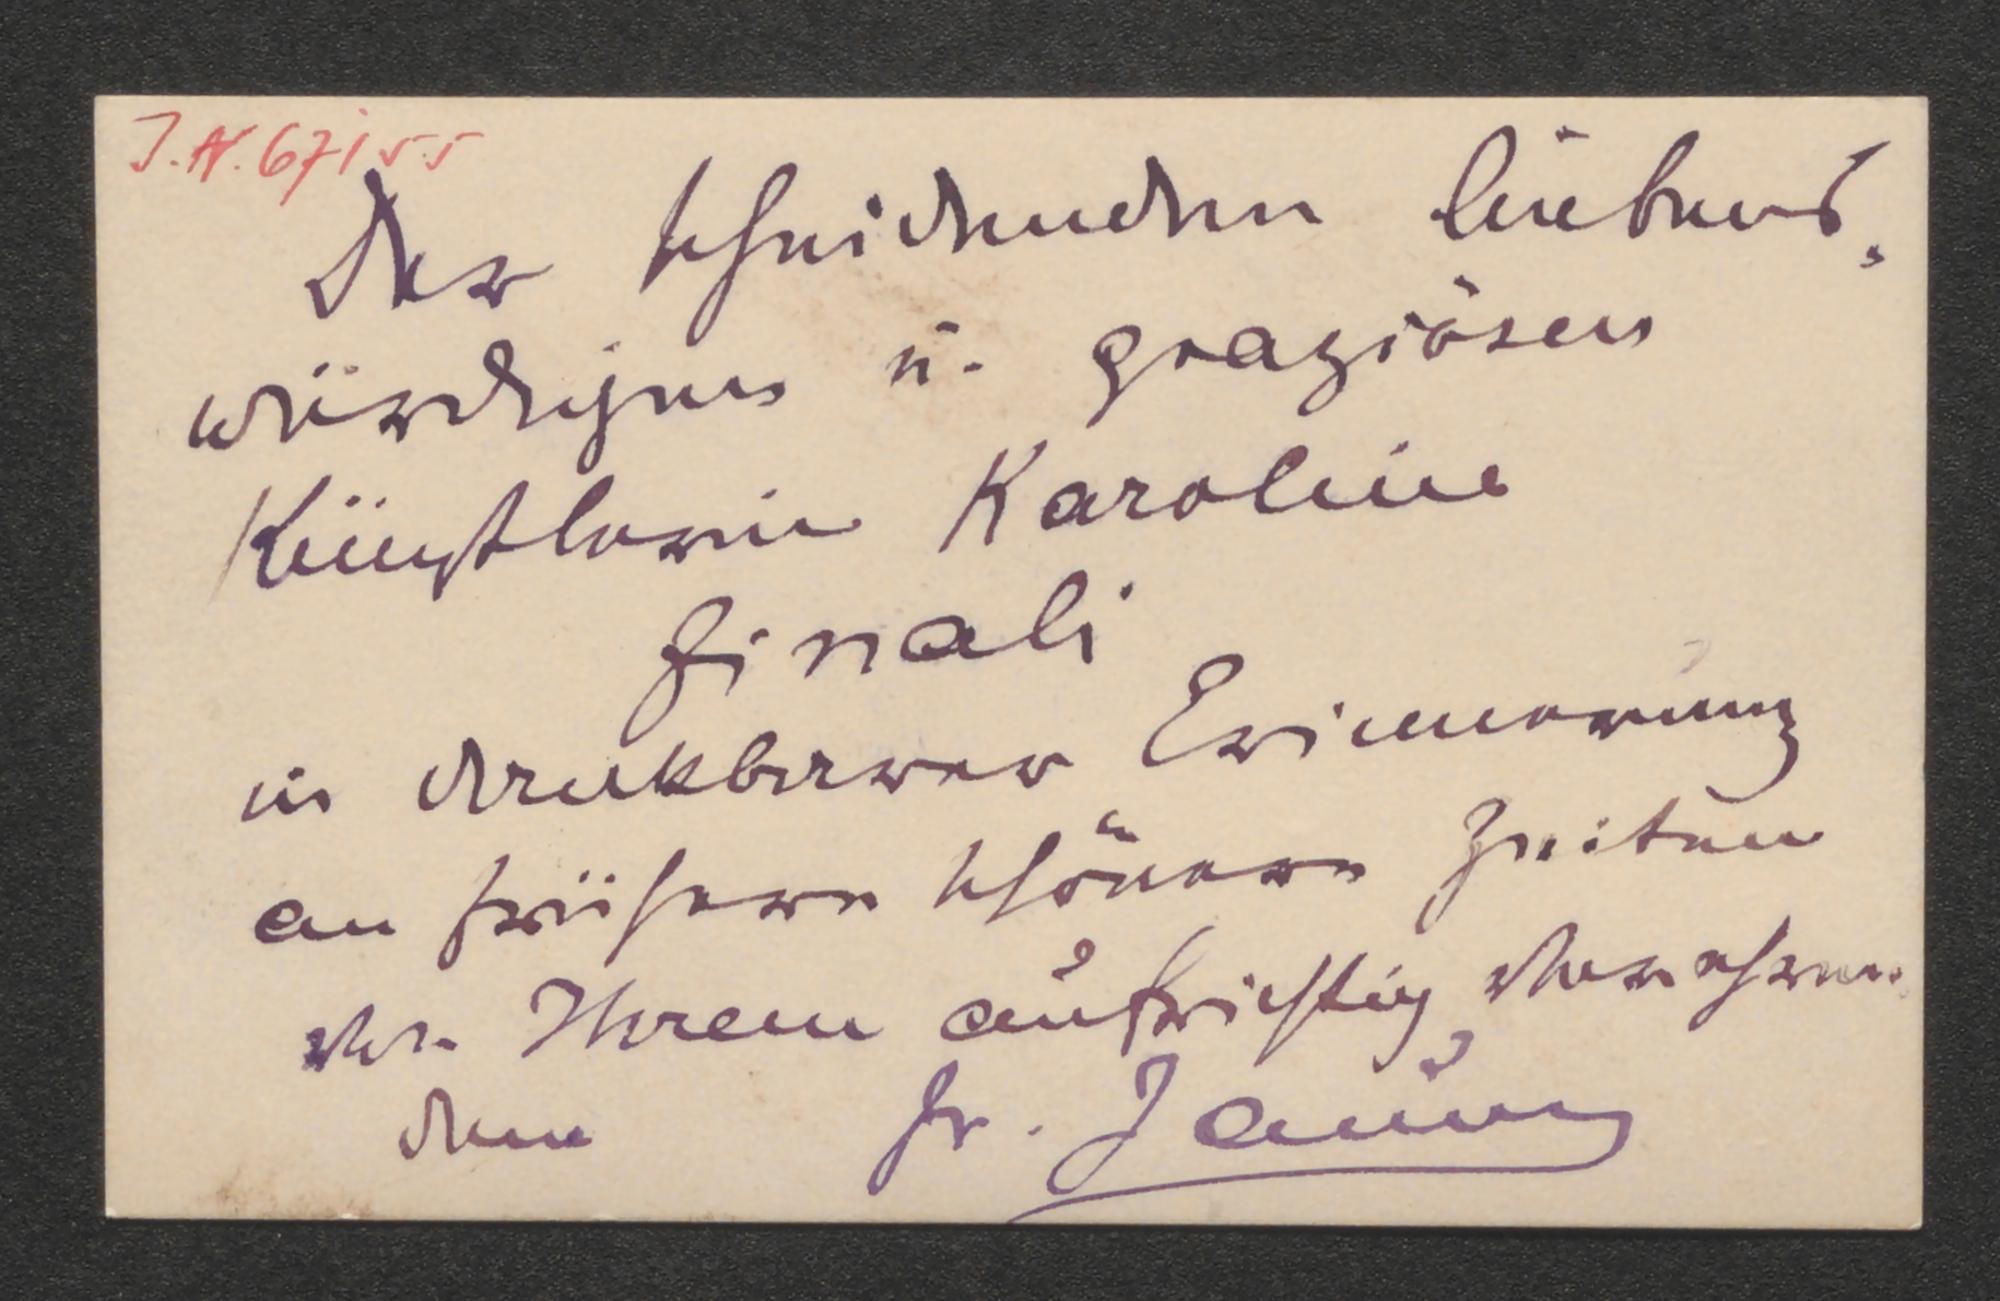 I.N. 67155
Der scheidenden liebens-
würdigen u. graziösen
Künstlerin Karoline
Finali
in dankbarer Erinnerung
an frühere schönere Zeiten
von Ihrem aufrichtig verehren-
den Fr. Jauner